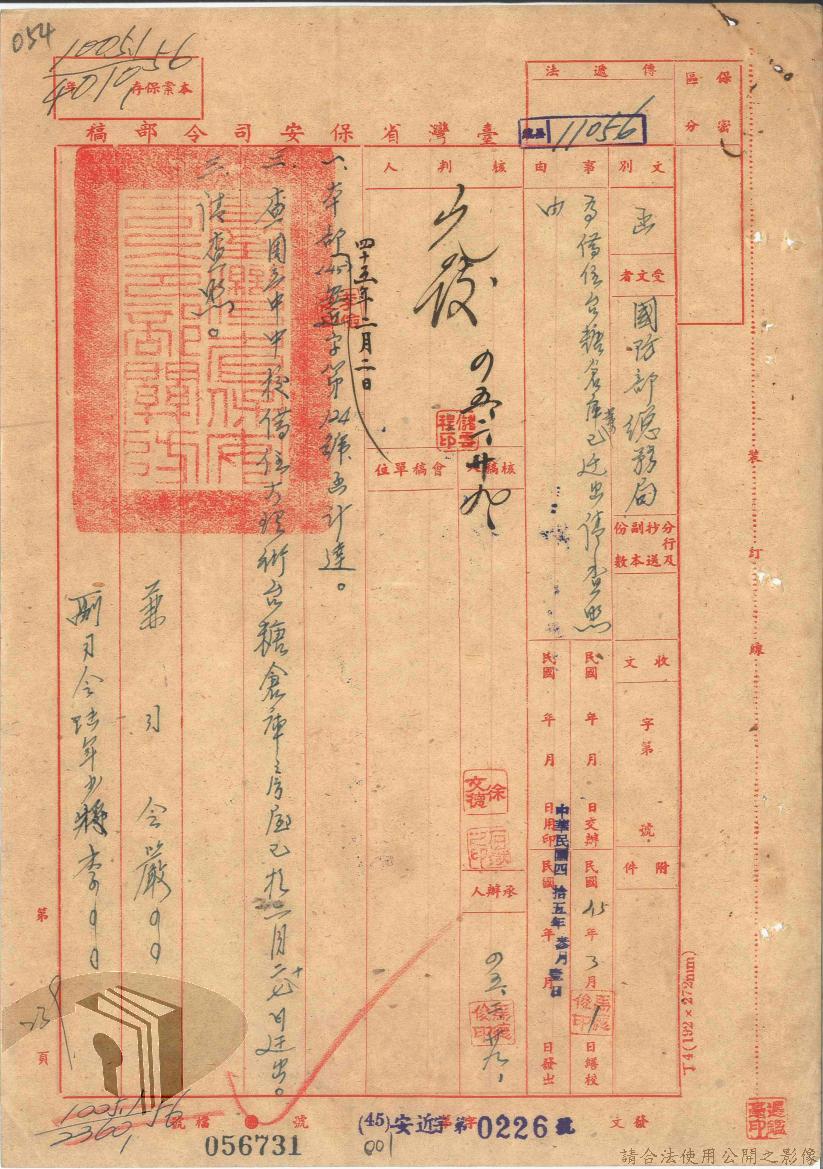 054
10051/56
401056
本案保存 年
臺灣省保安司令部稿
保密區分
傳遞法
總收 11056
文別
函
受文者
國防部總務局
分行及抄送副本份數
收文 字第 號
附件
事由
為借住台糖倉庫已迁出請查照由
民國 年 月 日交辦
民國45年3月1日繕校
民國 年 月 日用印
民國 年 月 日發出
中華民國四拾五年叁月壹日
核判人
核稿
會稿單位
承辦人
徐文德
四十五年二月二日
一、本部(45)安近字第124號函計達。
二、查国立中中校借住大理街台糖倉庫房屋已於二月二十七日迁出。
三、請查照。
兼司令嚴○○
副司令陸軍少將李○○
第 頁
裝訂線
T4(192×272mm)
10051/56
23601
檔號
號
056731
(45)安近字第0226號
001
發文
請合法使用公開之影像